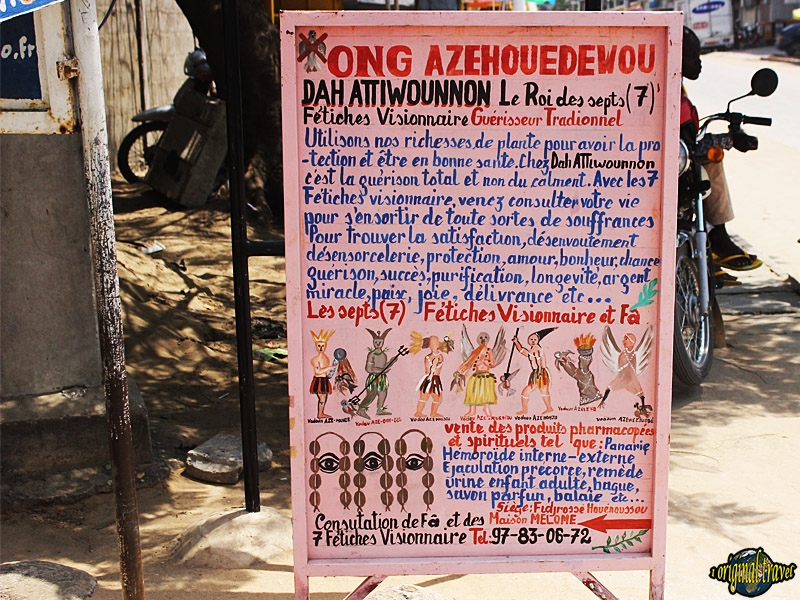 o.fr
ONG AZEHOUEDEWOU
DAH ATTIWOUNNON Le Roi des septs(7)
Fétiches Visionnaire Guérisseur Tradionnel
Utilisons nos richesses, de plante pour avoir la pro
-tection et être en bonne santé. Chez Dah Attiwounnon
c'est la guérison total et non du calment. Avec les 7
Fétiches visionnaire, venez consulter votre vie
pour s'ensortir de toute sortes de souffrances
Pour trouver la satisfaction, désenvoutement
désensorcelerie, protection, amour, bonheur, chance
guérison, succès, purification, longevité, argent
miracle, paix, joie, délivrance etc...
Les septs(7) Fétiches Visionnaire et Fâ
Vodou Vodou Vodou Vodou Vodou Vodou Vodou
vente des produits pharmacopées
et spirituels tel que: Panarie
Hémoroïde interne-externe
Ejaculation précorce, remède
urine enfant adulte, bague,
savon parfun, balaie etc...
Siège: Fidjrossè Houénoussou
Maison MELOME
Consutation de Fâ et des
7 Fétiches Visionnaire Tel: 97-83-06-72
1 original travel